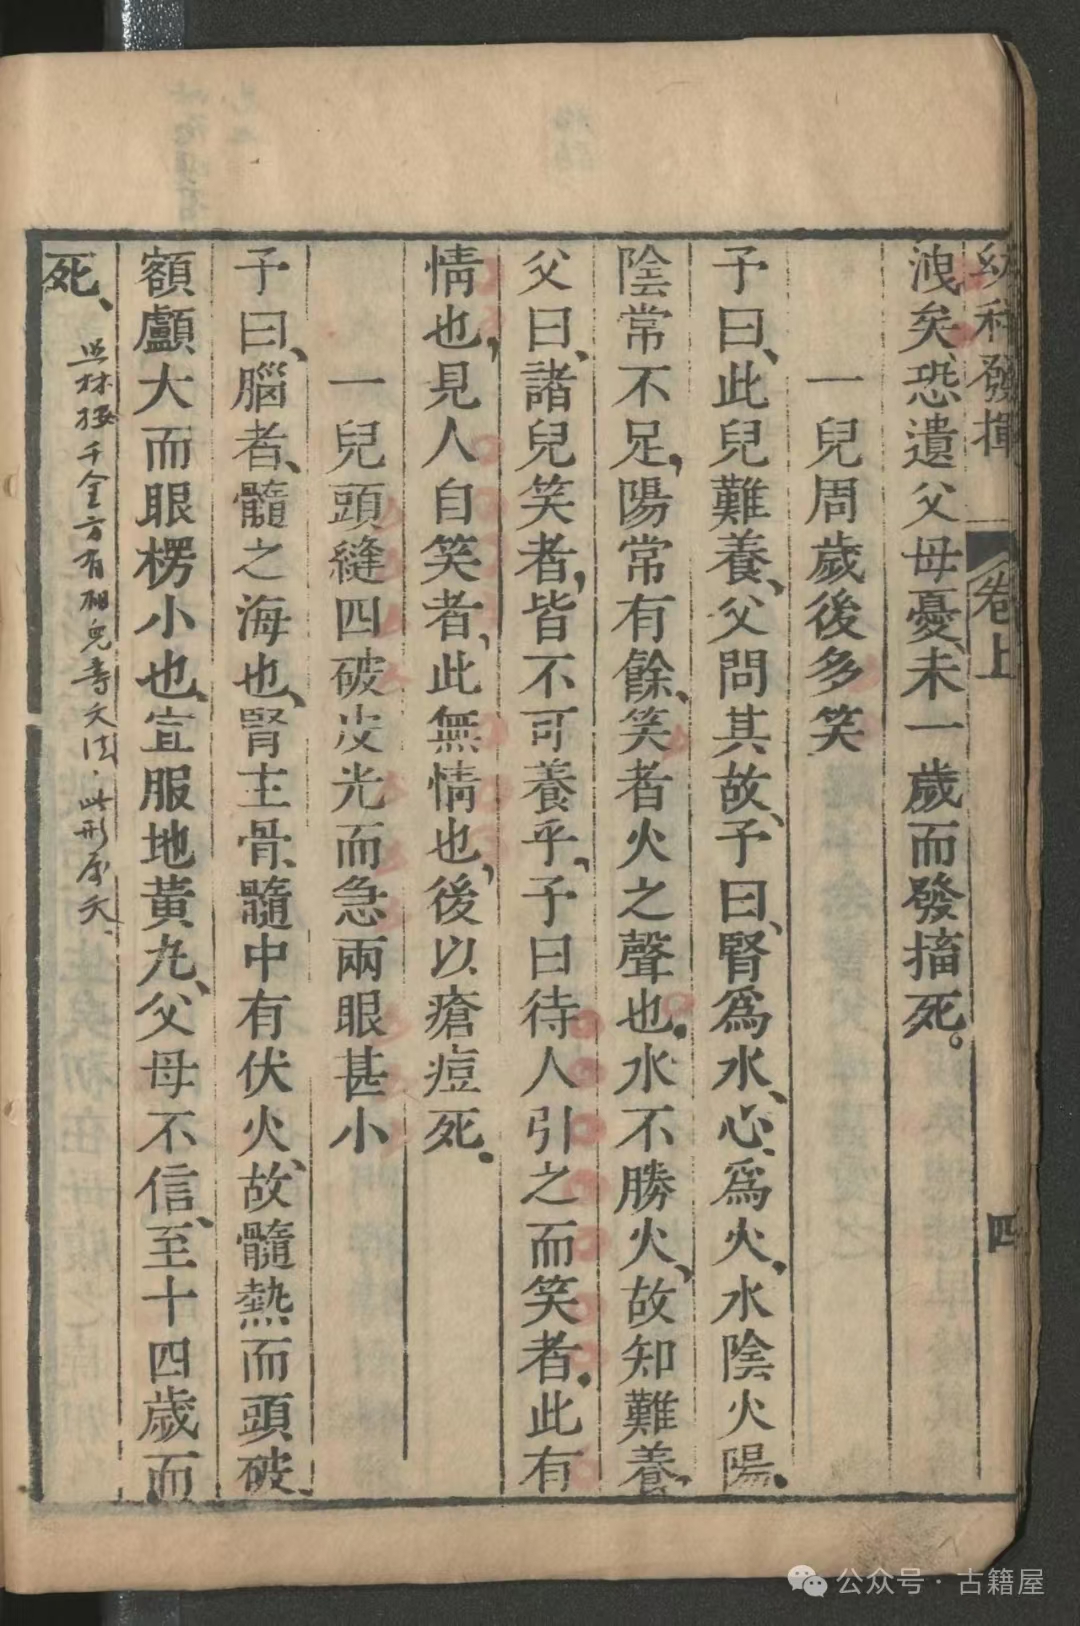 幼科發揮 卷上 四
洩矣、恐遺父母憂、未一歲而發搐死。
一兒周歲後多笑
予曰、此兒難養、父問其故、予曰、腎爲水、心、爲火、水陰火陽、
陰常不足、陽常有餘、笑者火之聲也、水不勝火、故知難養、
父曰、諸兒笑者、皆不可養乎、予曰待人引之而笑者、此有
情也、見人自笑者、此無情也、後以瘡痘死、
一兒頭縫四破皮光而急兩眼甚小
予曰、腦者、髓之海也、腎主骨、髓中有伏火、故髓熱而頭破、
額顱大而眼楞小也、宜服地黃丸、父母不信、至十四歲而
死、
千金方有相兒壽夭法、此形